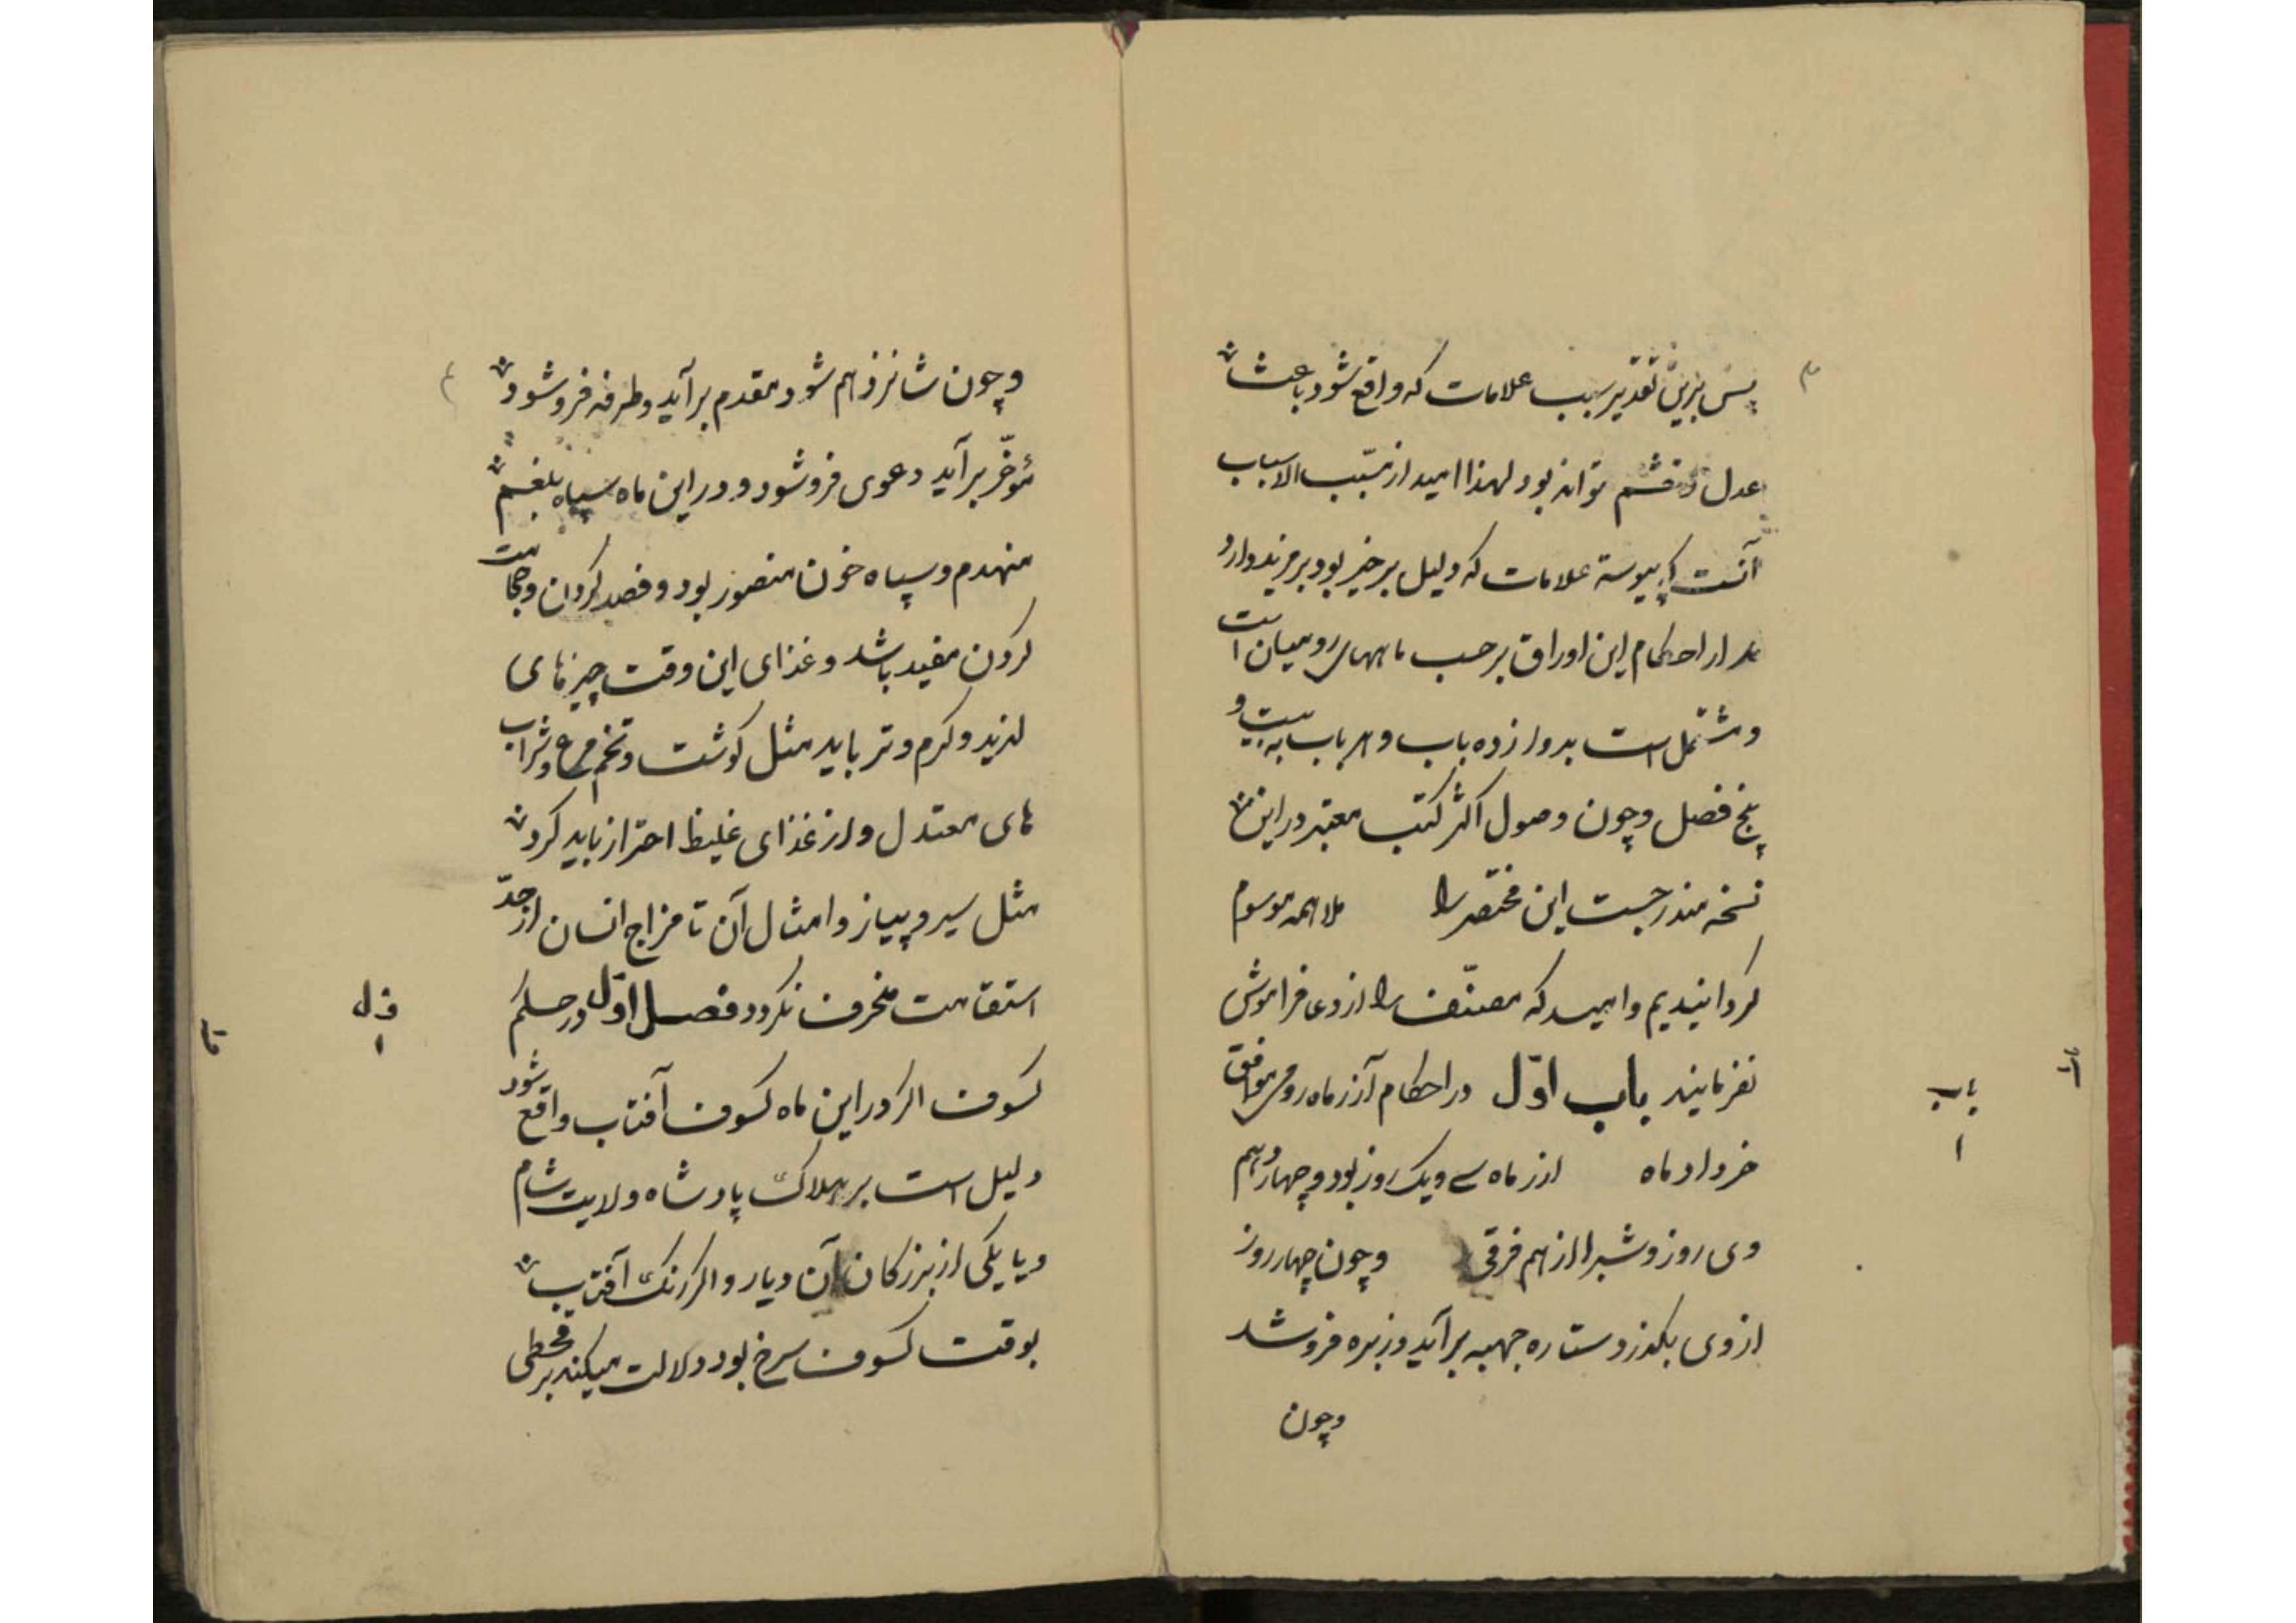 ۳
پس برین تقدیر سبب علامات که واقع شود باعث
عدل و قسم تواند بود لهذا امید از مسبب الاسباب
آنست که پیوسته علامات که دلیل بر خیر بود بر مزید دارد
مدار احکام این اوراق بر حسب ماههای رومیان است
و مشتمل است بدوازده باب و هر باب به بیست و
پنج فصل و چون وصول اکثر کتب معتبر در این
نسخه مندرجست این مختصر را ملاهمه موسوم
کردانیدیم و امید که مصنّف را از دعا فراموش
نفرمایند باب اوّل در احکام آذر ماه رومی موافق
باب
۱
خرداد ماه اذر ماه سے ویک روز بود و چهاردهم
وی روز و شبرا از هم فرقی و چون چهار روز
از وی بکذرد ستاره جبهه برآید و زبره فرو شد
و چون
و چون شانزدهم شود مقدم برآید و طرفه فرو شود
مؤخّر برآید و عوی فرو شود و در این ماه سپاه بلغم
منهدم و سپاه خون منصور بود و فصد کردن و حجامت
کردن مفید باشد و غذای این وقت چیزهای
لذید و کرم و تر باید مثل کوشت و تخم مرغ و شراب
های معتدل و از غذای غلیظ احتراز باید کرد
مثل سیر و پیاز و امثال آن تا مزاج انسان از حدّ
استقامت منحرف نکردد فصل اوّل در حکم
ف ل
۱
کسوف اکر در این ماه کسوف آفتاب واقع شود
دلیل است بر هلاک پادشاه ولایت شام
و یا یکی از بزرکان آن دیار و اکر رنک آفتاب
بوقت کسوف سرخ بود دلالت میکند بر قحطی